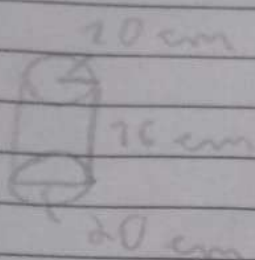 20 cm
16 cm
20 cm